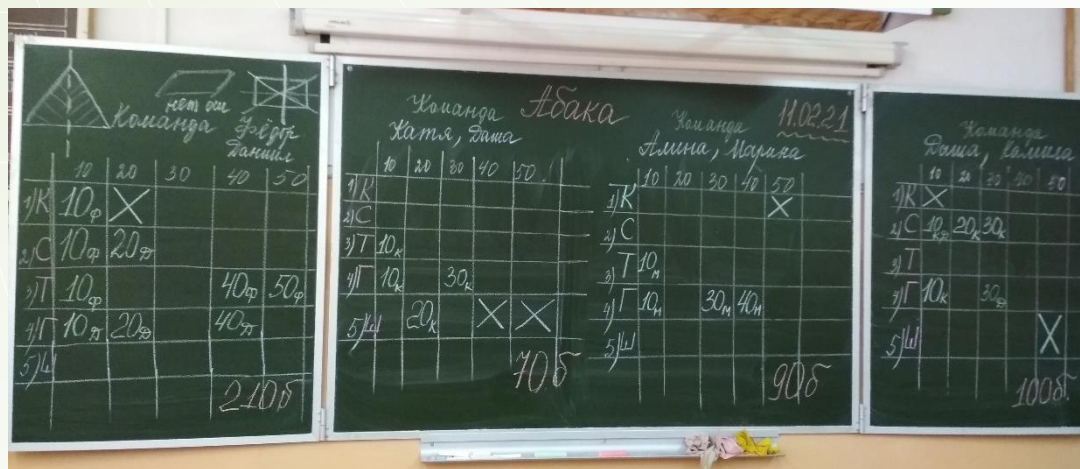 нет оси
Команда Фёдор
Даниил
10 20 30 40 50
1) К 10ф X
2) С 10ф 20д
3) Т 10ф 40ф 50ф
4) Г 10д 20д 40д
5) Ш
210б
Абака
11.02.21
Команда
Катя, Даша
10 20 30 40 50
1) К
2) С
3) Т 10к
4) Г 10к 30к
5) Ш 20к X X
70б
Команда
Алина, Марина
10 20 30 40 50
1) К X
2) С
3) Т 10м
4) Г 10м 30м 40м
5) Ш
90б
Команда
Даша,
10 20 30 40 50
1) К X
2) С 10 20к 30к
3) Т
4) Г 10к 30д
5) Ш X
100б.